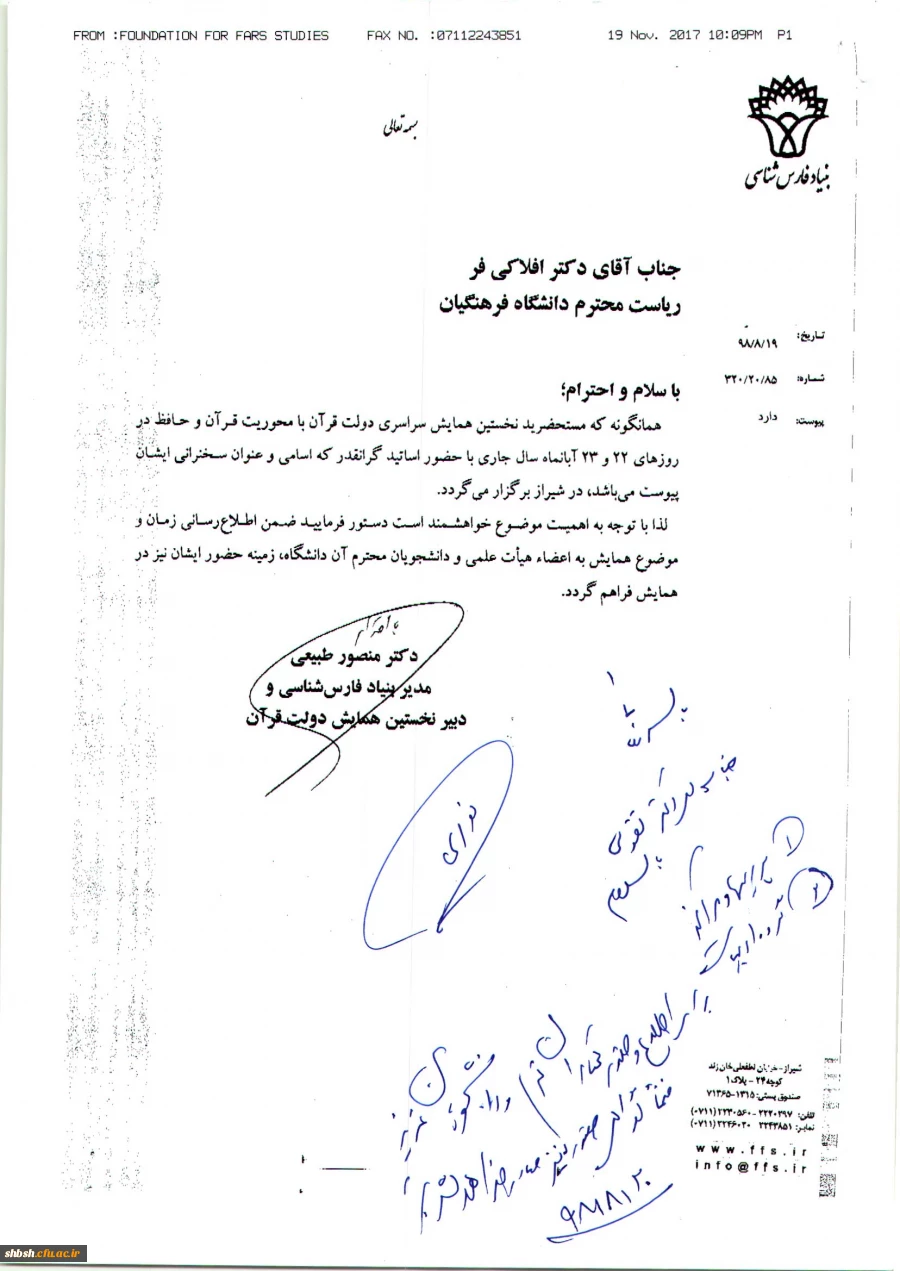 FROM :FOUNDATION FOR FARS STUDIES FAX NO. :07112243851 19 Nov. 2017 10:09PM P1
بسمه تعالی
بنیاد فارس شناسی
جناب آقای دکتر افلاکی فر
ریاست محترم دانشگاه فرهنگیان
تاریخ: ۹۸/۸/۱۹
شماره: ۳۲۰/۲۰/۸۵
پیوست: دارد
با سلام و احترام؛
همانگونه که مستحضرید نخستین همایش سراسری دولت قرآن با محوریت قرآن و حافظ در
روزهای ۲۲ و ۲۳ آبانماه سال جاری با حضور اساتید گرانقدر که اسامی و عنوان سخنرانی ایشان
پیوست می‌باشد، در شیراز برگزار می‌گردد.
لذا با توجه به اهمیت موضوع خواهشمند است دستور فرمایید ضمن اطلاع‌رسانی زمان و
موضوع همایش به اعضاء هیأت علمی و دانشجویان محترم آن دانشگاه، زمینه حضور ایشان نیز در
همایش فراهم گردد.
با احترام
دکتر منصور طبیعی
مدیر بنیاد فارس‌شناسی و
دبیر نخستین همایش دولت قرآن
برای اطلاع و حضور
۹۸/۸/۲۰
شیراز-خیابان لطفعلی‌خان زند
کوچه ۲۴ - پلاک ۱
صندوق پستی: ۱۳۱۵-۷۱۳۶۵
تلفن: ۲۲۳۰۲۹۷ - ۲۲۳۰۵۶۰ (۰۷۱۱)
نمابر: ۲۲۴۳۸۵۱ ۲۲۴۶۰۳۰ (۰۷۱۱)
www.ffs.ir
info@ffs.ir
shbsh.cfu.ac.ir